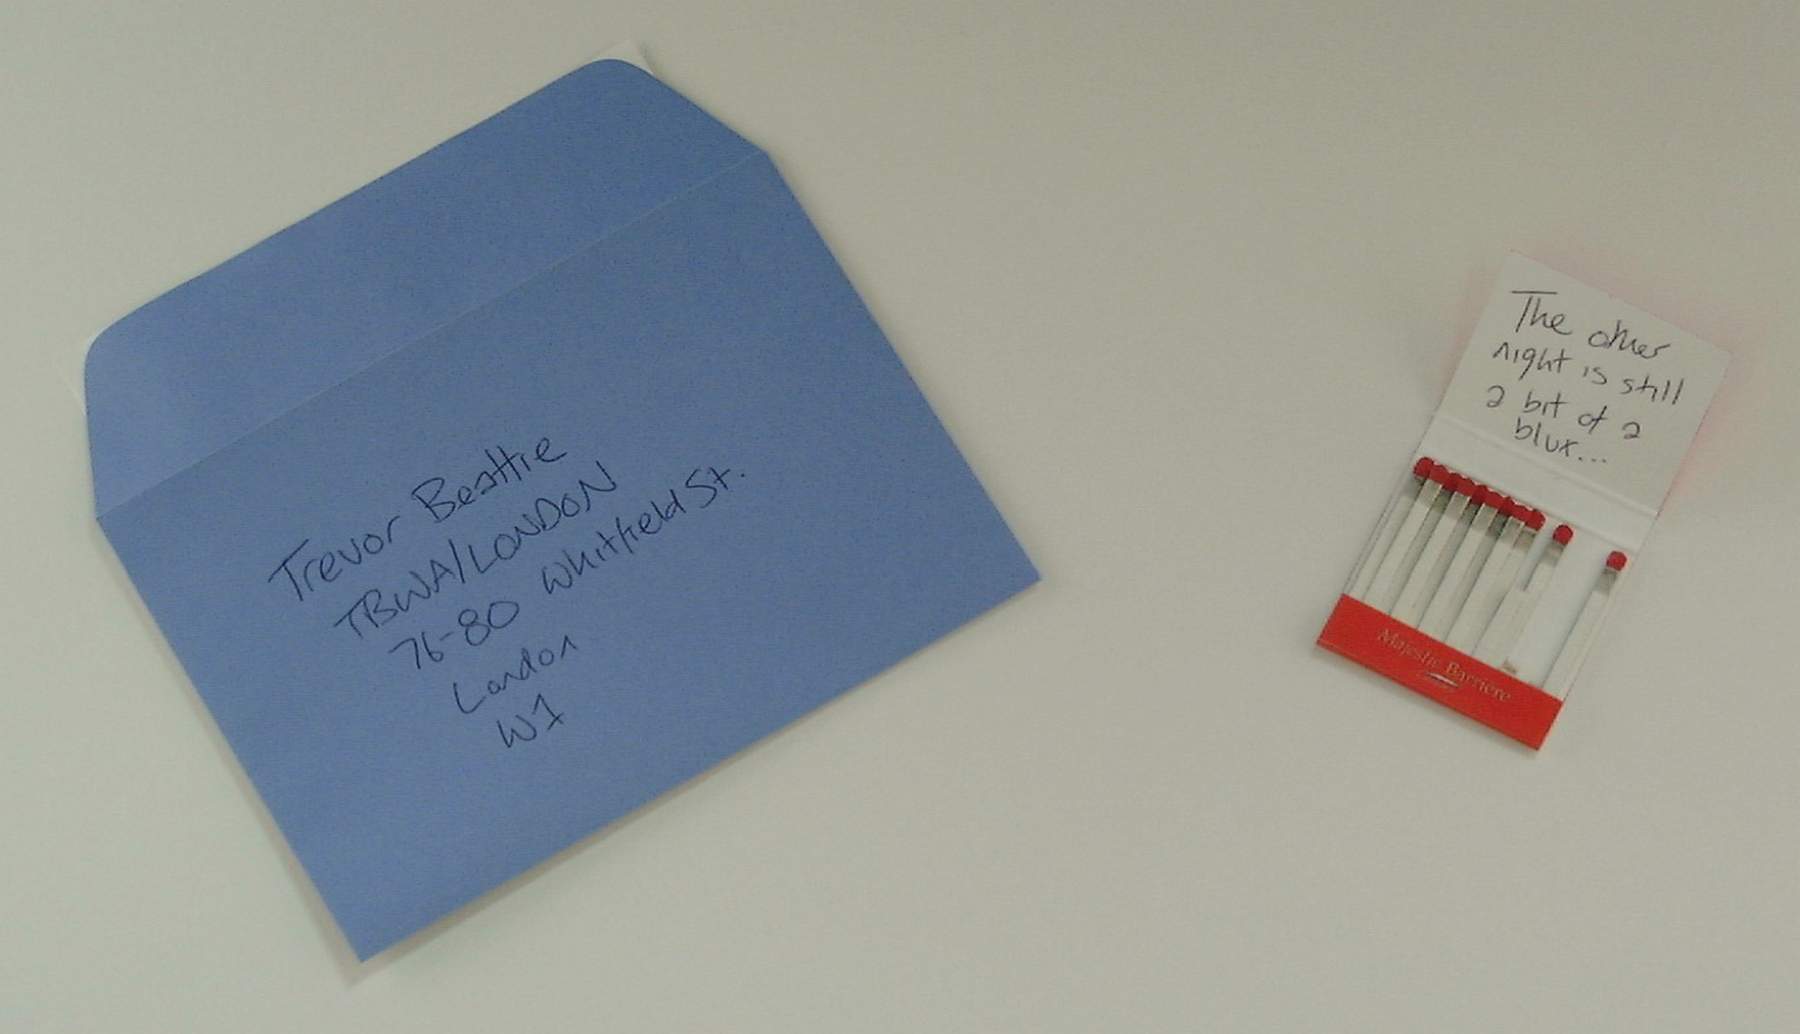 Trevor Beattie
TBWA/LONDON
76-80 Whitfield St.
London
W1
The other
night is still
a bit of a
blur...
Majestic Barrière